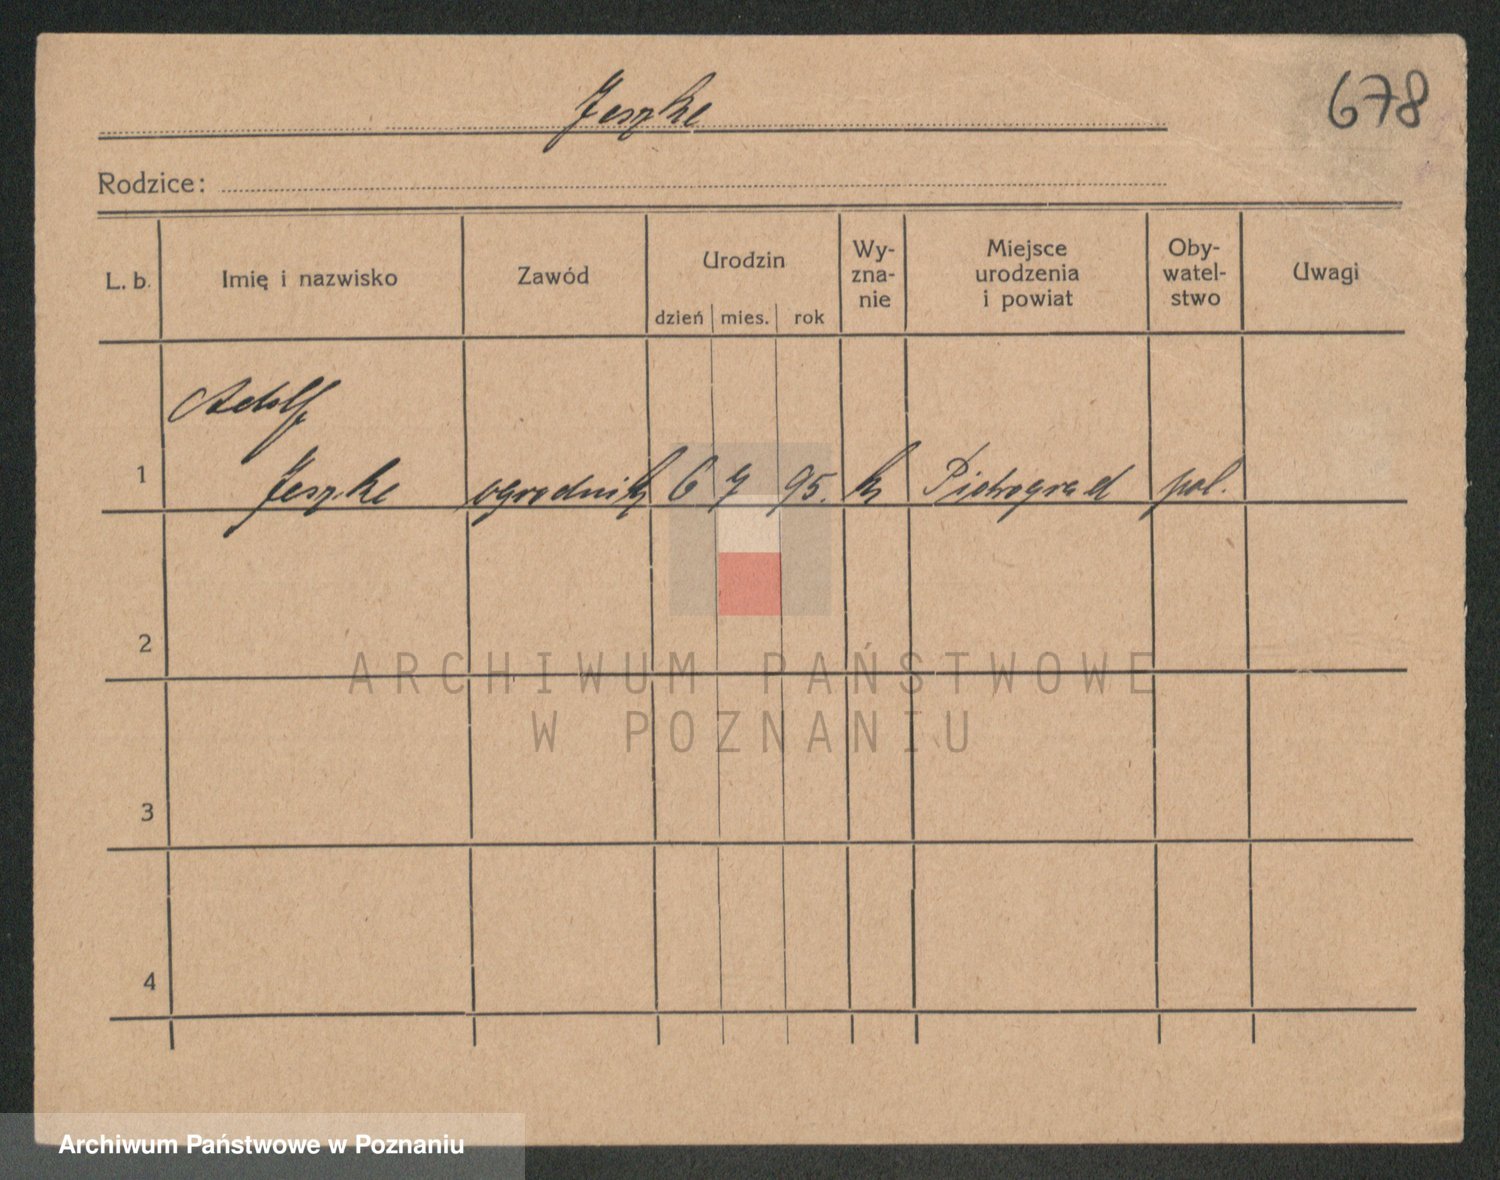 Jeszke
678
Rodzice:
L. b. Imię i nazwisko Zawód Urodzin dzień mies. rok Wy-zna-nie Miejsce urodzenia i powiat Oby-watel-stwo Uwagi
Adolf
1 Jeszke ogrodnik 6 7 95. k Piotrograd pol.
2
ARCHIWUM PAŃSTWOWE
W POZNANIU
3
4
Archiwum Państwowe w Poznaniu